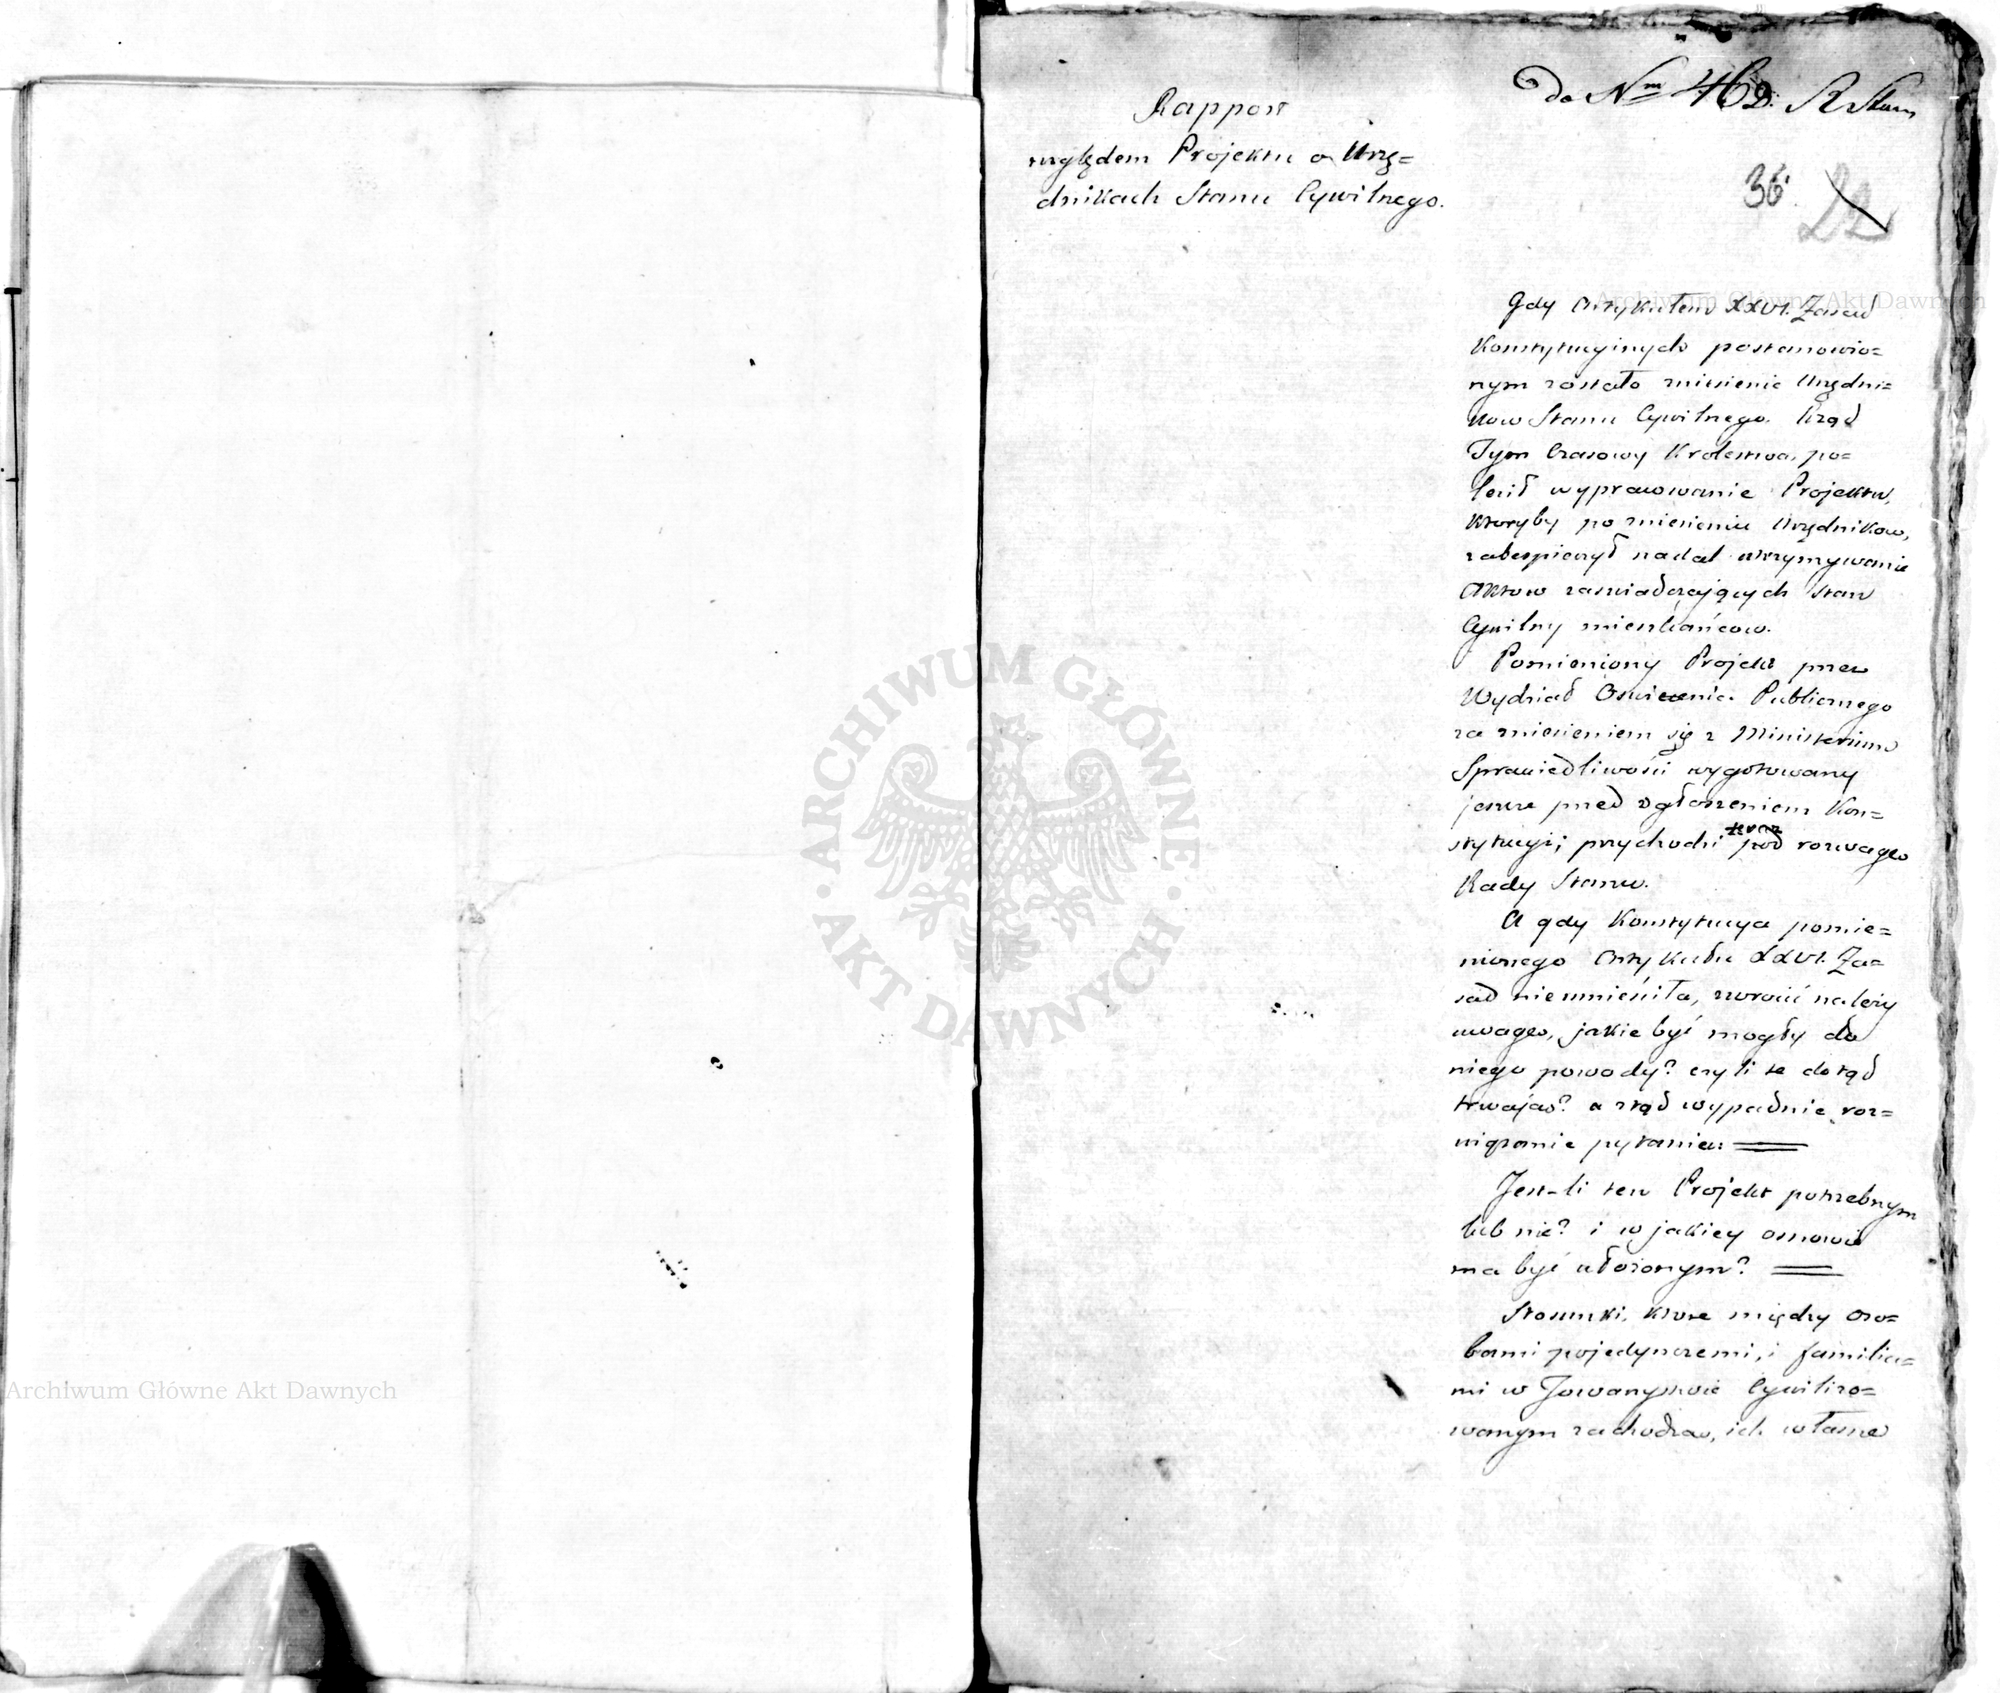 Do Nrᵐ 46 D. R Stanu
Rapport
względem Projektu o Urzę=
dnikach Stanu Cywilnego.
36. 22
Gdy Artykułem XXVI. Zasad
Konstytucyinych postanowio=
nym zostało zniesienie Urzędni=
kow Stanu Cywilnego. Rząd
Tym Czasowy Krolestwa, po=
lecił wypracowanie Projektu,
ktoryby po zniesieniu Urzędnikow,
zabespieczył nadal utrzymywanie
Aktow zaswiadczaiących stan
Cywilny mieszkańcow.
Pomieniony Projekt przez
Wydział Oswiecenia Publicznego
za zniesieniem się z Ministerium
Sprawiedliwości wygotowany
jeszcze przed ogłoszeniem Kon=
stytucyi; przychodzi teraz pod rozwagę
Rady Stanu.
A gdy Konstytucya pomie=
nionego Artykułu XXVI. Za=
sad nieumieściła, zwrocić należy
uwagę, jakie być mogły do
niego powody? czyli te dotąd
trwają? a ztąd wypadnie roz=
wiązanie pytania:
Jest-li ten Projekt potrzebnym
lub nie? i w jakiey osnowie
ma być ułożonym?
Stosunki, ktore między oso=
bami pojedynczemi, i familia=
mi w Towarzystwie Cywilizo=
wanym zachodzą, ich własne
ARCHIWUM GŁÓWNE AKT DAWNYCH
Archiwum Główne Akt Dawnych
Archiwum Główne Akt Dawnych